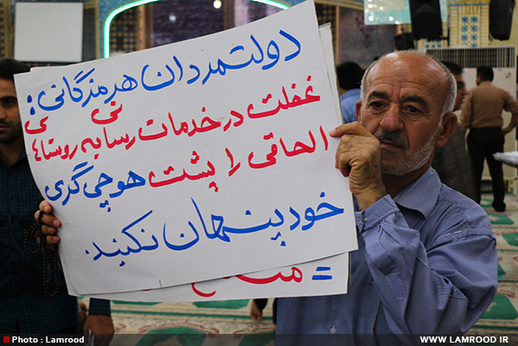 دولتمردان هرمزگانی:
غفلت در خدمات رسانی به روستاهای
الحاقی را پشت هوچی گری
خود پنهان نکنید.
=
Photo : Lamrood
WWW. LAMROOD IR